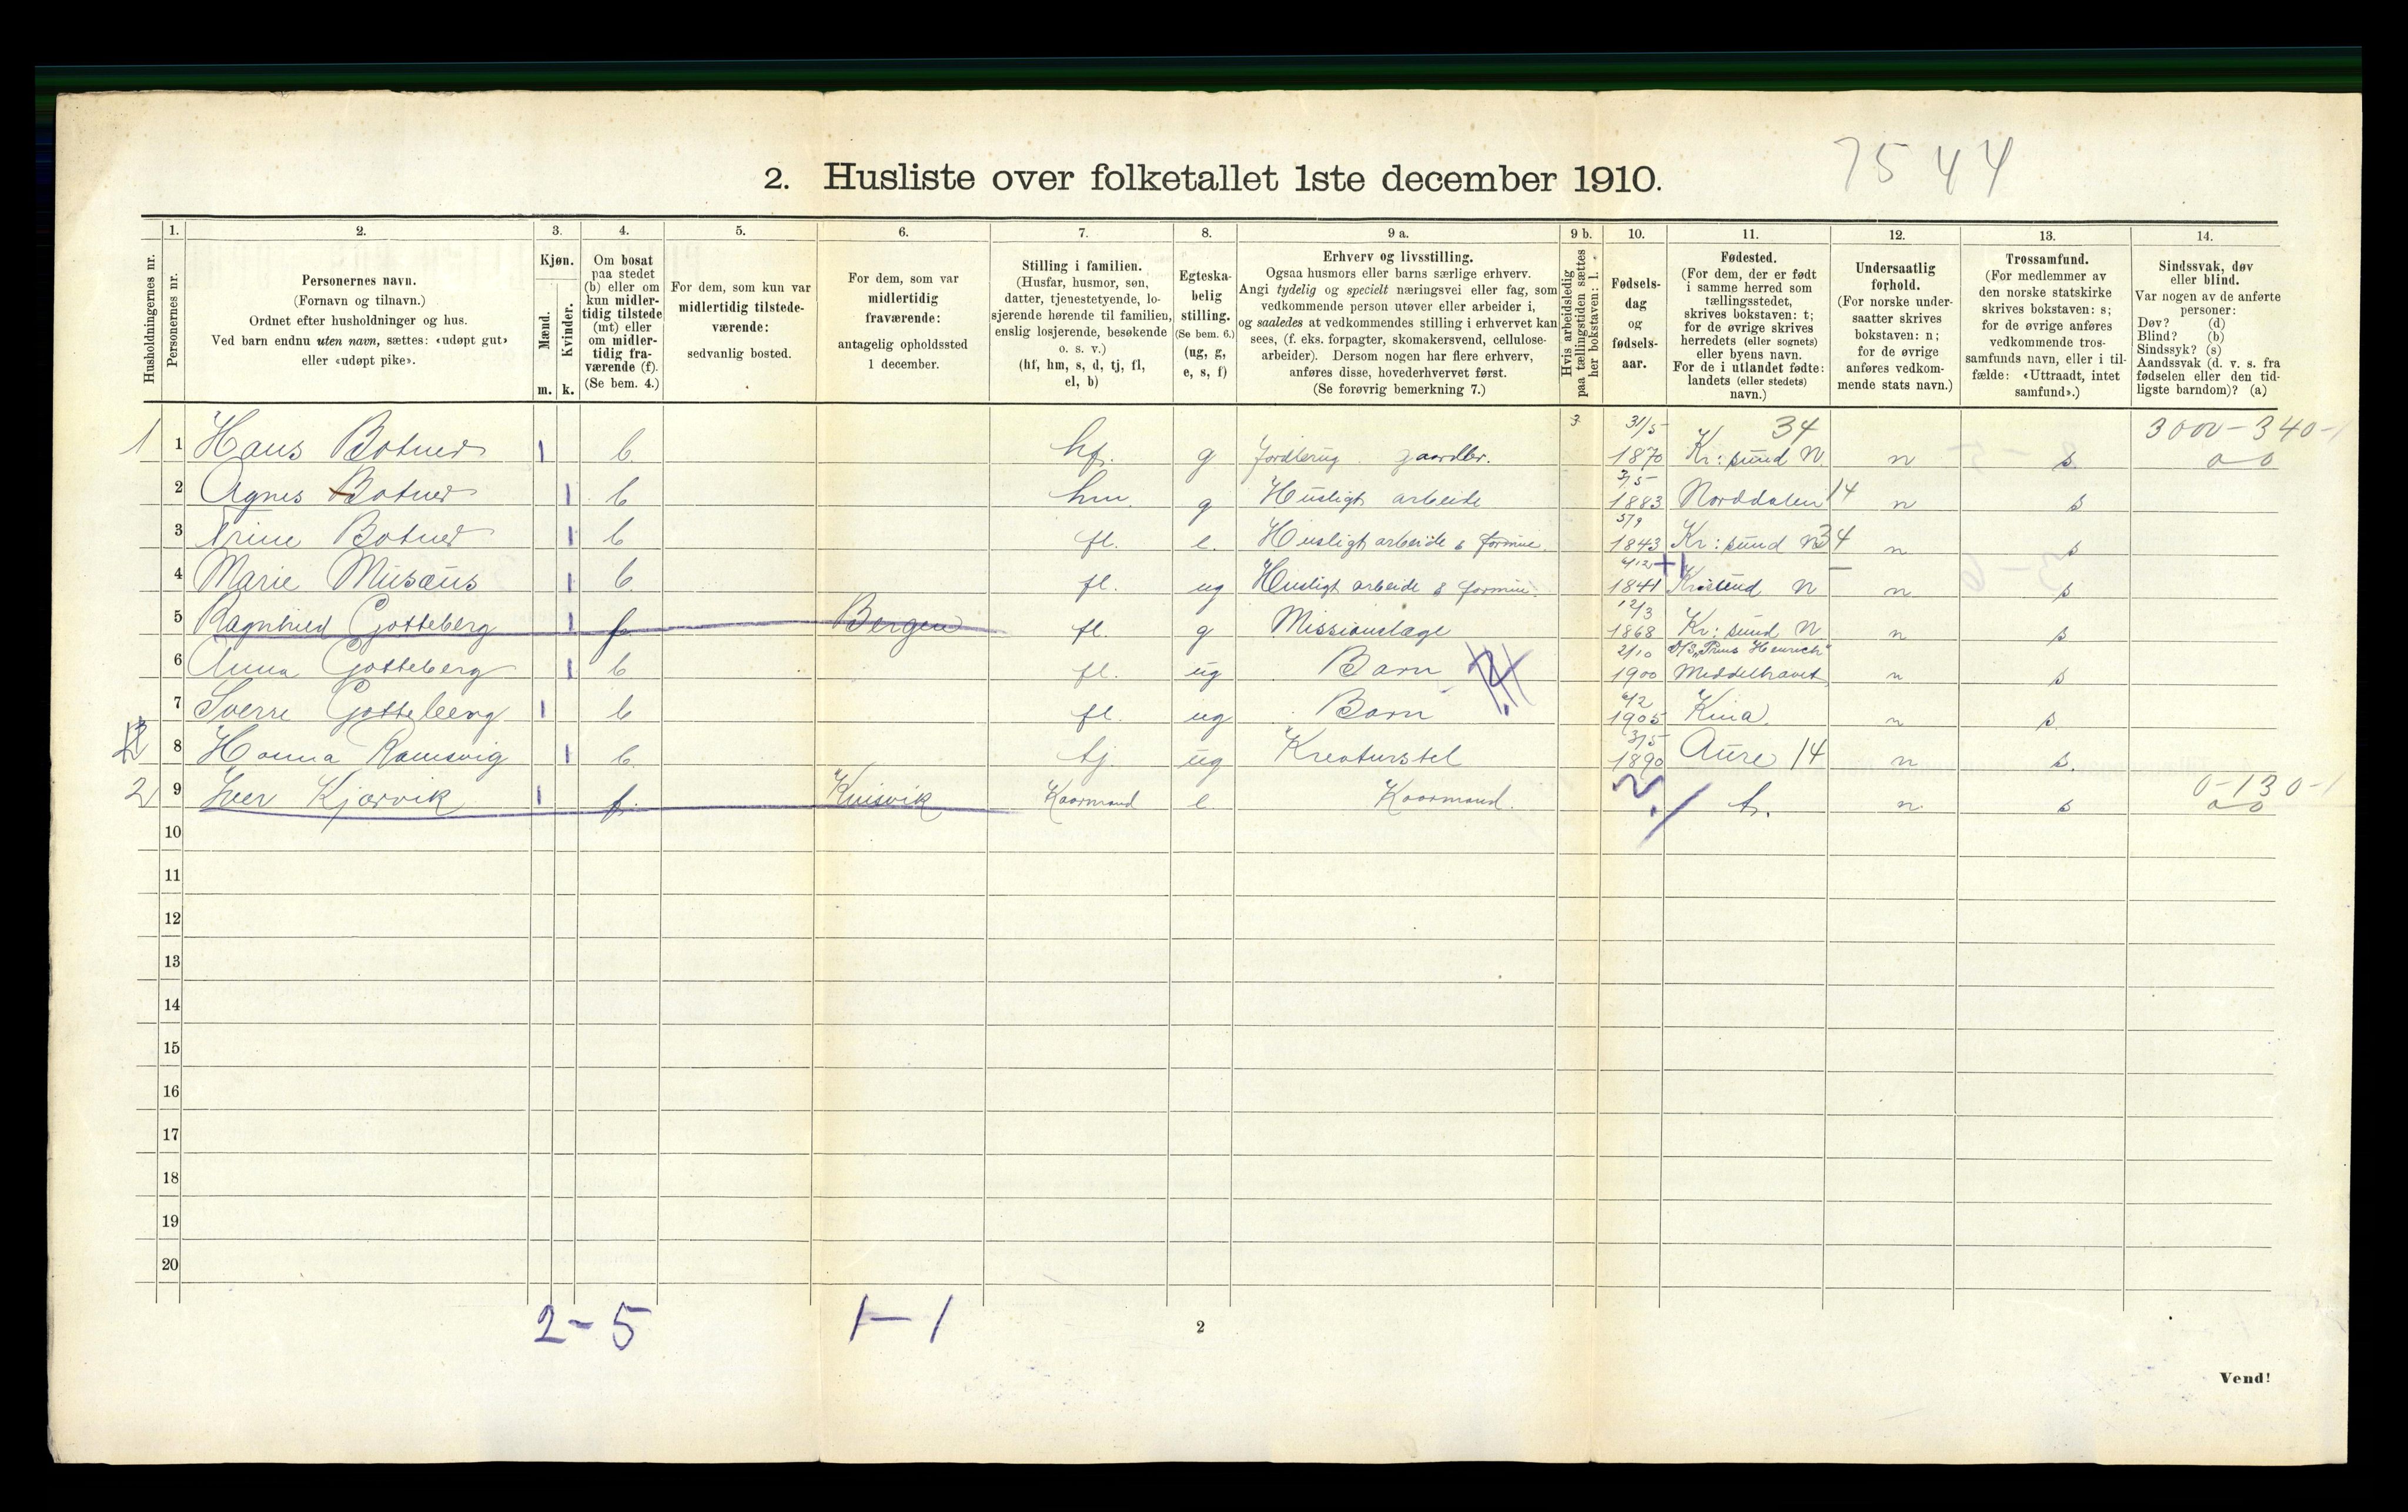 2. Husliste over folketallet 1ste december 1910.
7544
1. 2. 3. 4. 5. 6. 7. 8. 9 a. 9 b. 10. 11. 12. 13. 14.
Husholdningernes nr.
Personernes nr.
Personernes navn.
(Fornavn og tilnavn.)
Ordnet efter husholdninger og hus.
Ved barn endnu uten navn, sættes: «udøpt gut»
eller «udøpt pike».
Kjøn.
Mænd.
Kvinder.
m. k.
Om bosat
paa stedet
(b) eller om
kun midler-
tidig tilstede
(mt) eller
om midler-
tidig fra-
værende (f).
(Se bem. 4.)
For dem, som kun var
midlertidig tilstede-
værende:
sedvanlig bosted.
For dem, som var
midlertidig
fraværende:
antagelig opholdssted
1 december.
Stilling i familien.
(Husfar, husmor, søn,
datter, tjenestetyende, lo-
sjerende hørende til familien,
enslig losjerende, besøkende
o. s. v.)
(hf, hm, s, d, tj, fl,
el, b)
Egteska-
belig
stilling.
(Se bem. 6.)
(ug, g,
e, s, f)
Erhverv og livsstilling.
Ogsaa husmors eller barns særlige erhverv.
Angi tydelig og specielt næringsvei eller fag, som
vedkommende person utøver eller arbeider i,
og saaledes at vedkommendes stilling i erhvervet kan
sees, (f. eks. forpagter, skomakersvend, cellulose-
arbeider). Dersom nogen har flere erhverv,
anføres disse, hovederhvervet først.
(Se forøvrig bemerkning 7.)
Hvis arbeidsledig
paa tællingstiden sættes
her bokstaven: l.
Fødsels-
dag
og
fødsels-
aar.
Fødested.
(For dem, der er født
i samme herred som
tællingsstedet,
skrives bokstaven: t;
for de øvrige skrives
herredets (eller sognets)
eller byens navn.
For de i utlandet fødte:
landets (eller stedets)
navn.)
Undersaatlig
forhold.
(For norske under-
saatter skrives
bokstaven: n;
for de øvrige
anføres vedkom-
mende stats navn.)
Trossamfund.
(For medlemmer av
den norske statskirke
skrives bokstaven: s;
for de øvrige anføres
vedkommende tros-
samfunds navn, eller i til-
fælde: «Uttraadt, intet
samfund».)
Sindssvak, døv
eller blind.
Var nogen av de anførte
personer:
Døv? (d)
Blind? (b)
Sindssyk? (s)
Aandssvak (d. v. s. fra
fødselen eller den tid-
ligste barndom)? (a)
3 31/5 34 3000-340-1
1 1 Hans Botner 1 b. hf. g Jordbrug gaardbr. 1870 Kr:sund N n s 0 0
2/5
2 Agnes Botner 1 b hm. g Husligt arbeide 1883 Norddalen 14 n s
5/9
3 Trine Botner 1 b fl. e. Husligt arbeide & formue 1843 Kr:sund N 34 n s
6/12
4 Marie Musæus 1 b. fl. ug Husligt arbeide & formue. 1841 Kr:sund N n s
12/3
5 Ragnhild Gotteberg 1 f Bergen fl. g Missionslæge 1868 Kr:sund N n s
2/10 D/S "Prins Heinrich"
6 Anna Gotteberg 1 b fl. ug Barn 1900 Middelhavet n s
6/2
7 Sverre Gotteberg 1 b fl. ug Barn 1905 Kina. n s.
3/5
8 Hanna Ramsvig 1 b. tj. ug Kreaturstel 1890 Aure 14 n s.
0-130-1
2 9 Iver Kjørvik 1 f. Knisvik Kaarmand e Kaarmand. t. n s 0 0
10
11
12
13
14
15
16
17
18
19
20
2-5 1-1
2
Vend!